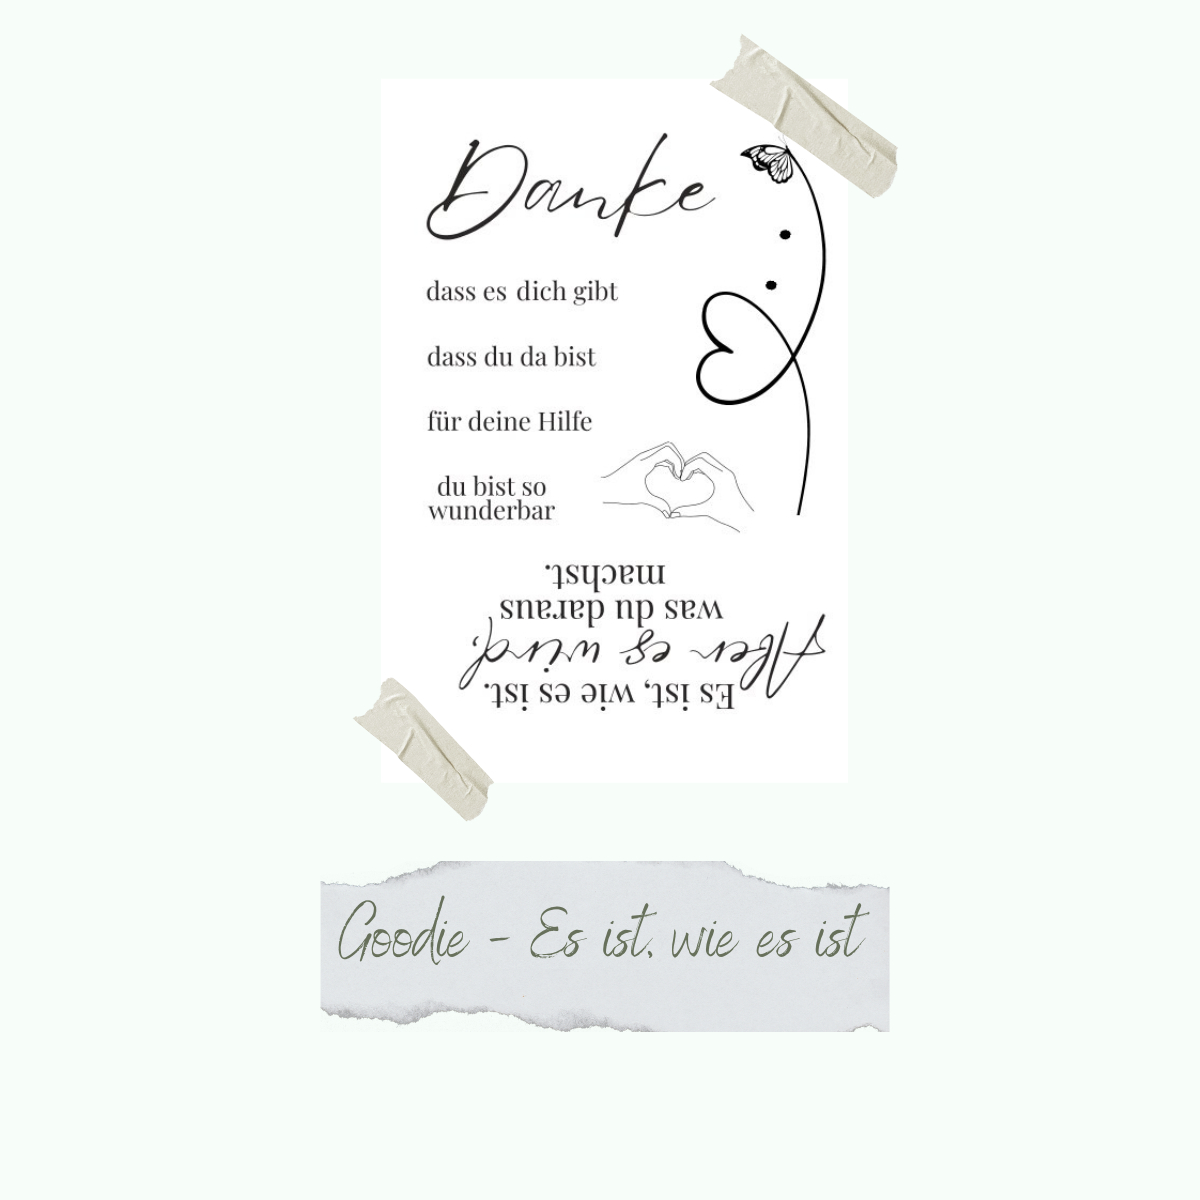 Danke
dass es dich gibt
dass du da bist
für deine Hilfe
du bist so
wunderbar
Es ist, wie es ist.
Aber es wird,
was du daraus
machst.
Goodie - Es ist, wie es ist